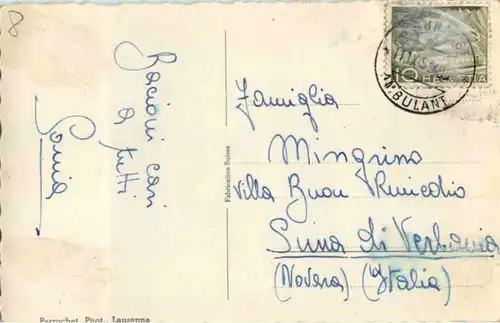 8
Bacioni cari
a tutti
Sonia
Fabrication Suisse
Perrochet Phot., Lausanne
10 HELVETIA
AMBULANT
Famiglia
Mingrino
Villa Buon Rimedio
Suna di Verbania
(Novara) (Italia)